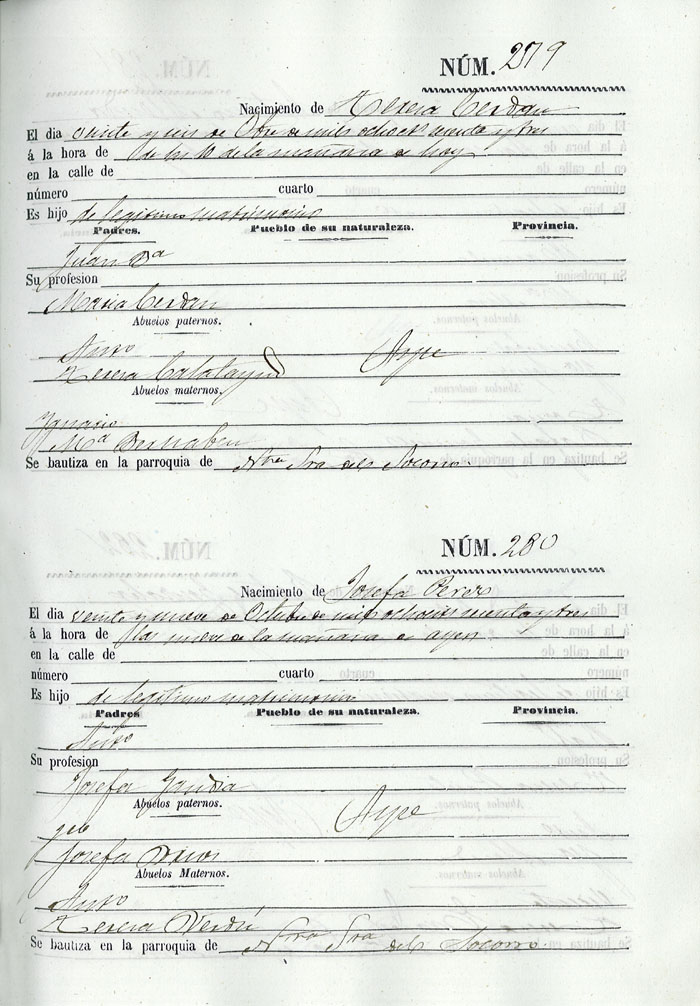 NÚM. 279
Nacimiento de Teresa Cerdan
El dia veinte y seis de Obre de mil ochocs sesenta y tres
á la hora de de las 10 de la mañana de hoy
en la calle de
número cuarto
Es hijo de legitimo matrimonio
Padres. Pueblo de su naturaleza. Provincia.
Juan Bta
Su profesion
Maria Cerdan
Abuelos paternos.
Anto
Teresa Calatayud Aspe
Abuelos maternos.
Ignacio
Ma Bernabeu
Se bautiza en la parroquia de Ntra Sra del Socorro.
NÚM. 280
Nacimiento de Josefa Perez
El dia veinte y nueve de Octubre de mil ochocs sesenta y tres
á la hora de las nueve de la mañana de ayer
en la calle de
número cuarto
Es hijo de legitimo matrimonio
Padres Pueblo de su naturaleza. Provincia.
Anto
Su profesion
Josefa Gandia
Abuelos paternos.
Aspe
Josefa
Abuelos Maternos.
Anto
Teresa Verdú
Se bautiza en la parroquia de Ntra Sra del Socorro